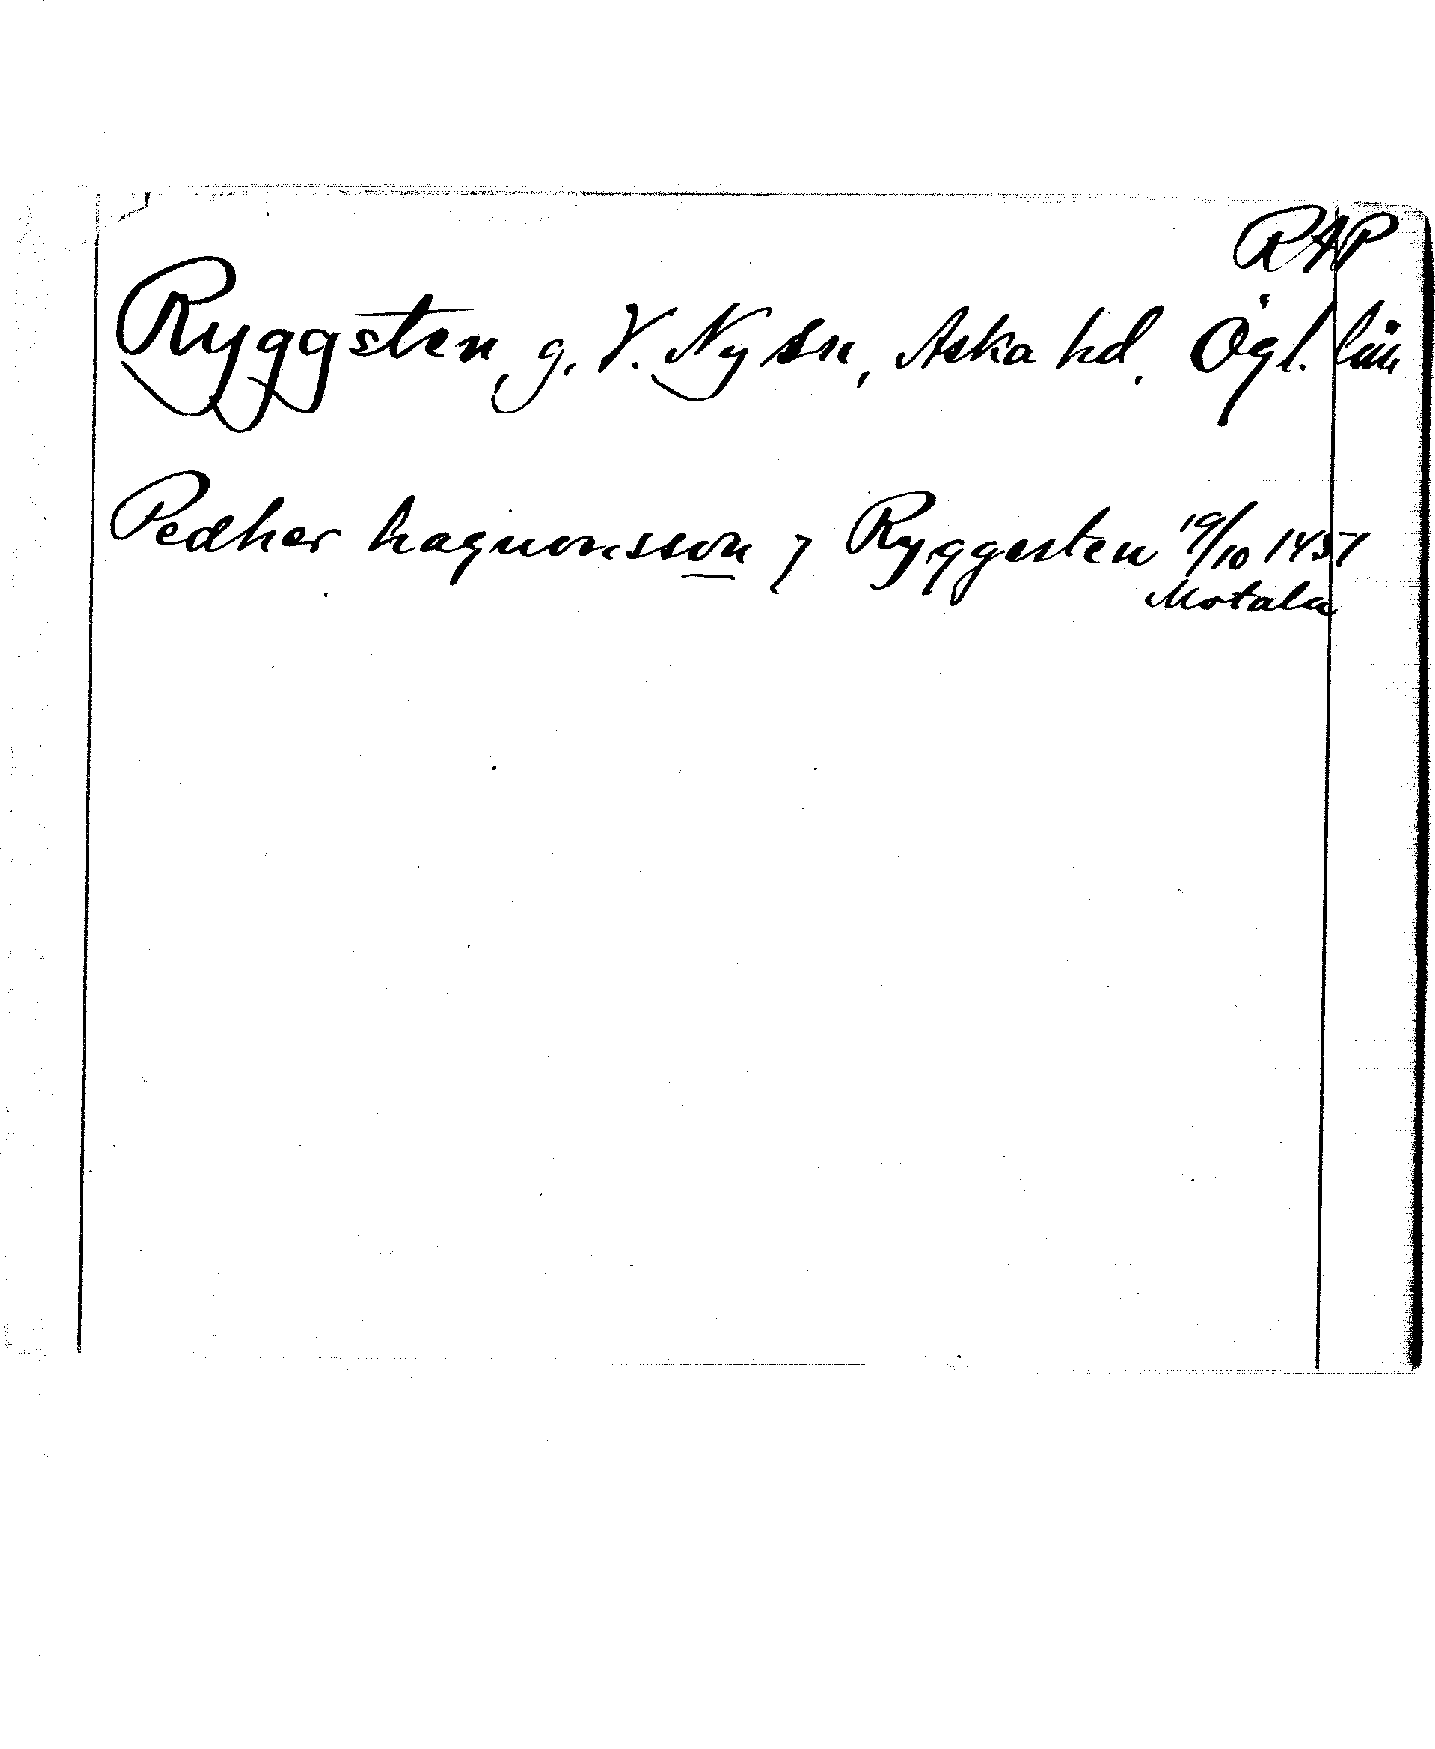 RAP
Ryggsten, g. V. Ny sn, Aska hd. Ögl. län
Pedher haquonsson j Ryggesten 19/10 1451
Motala